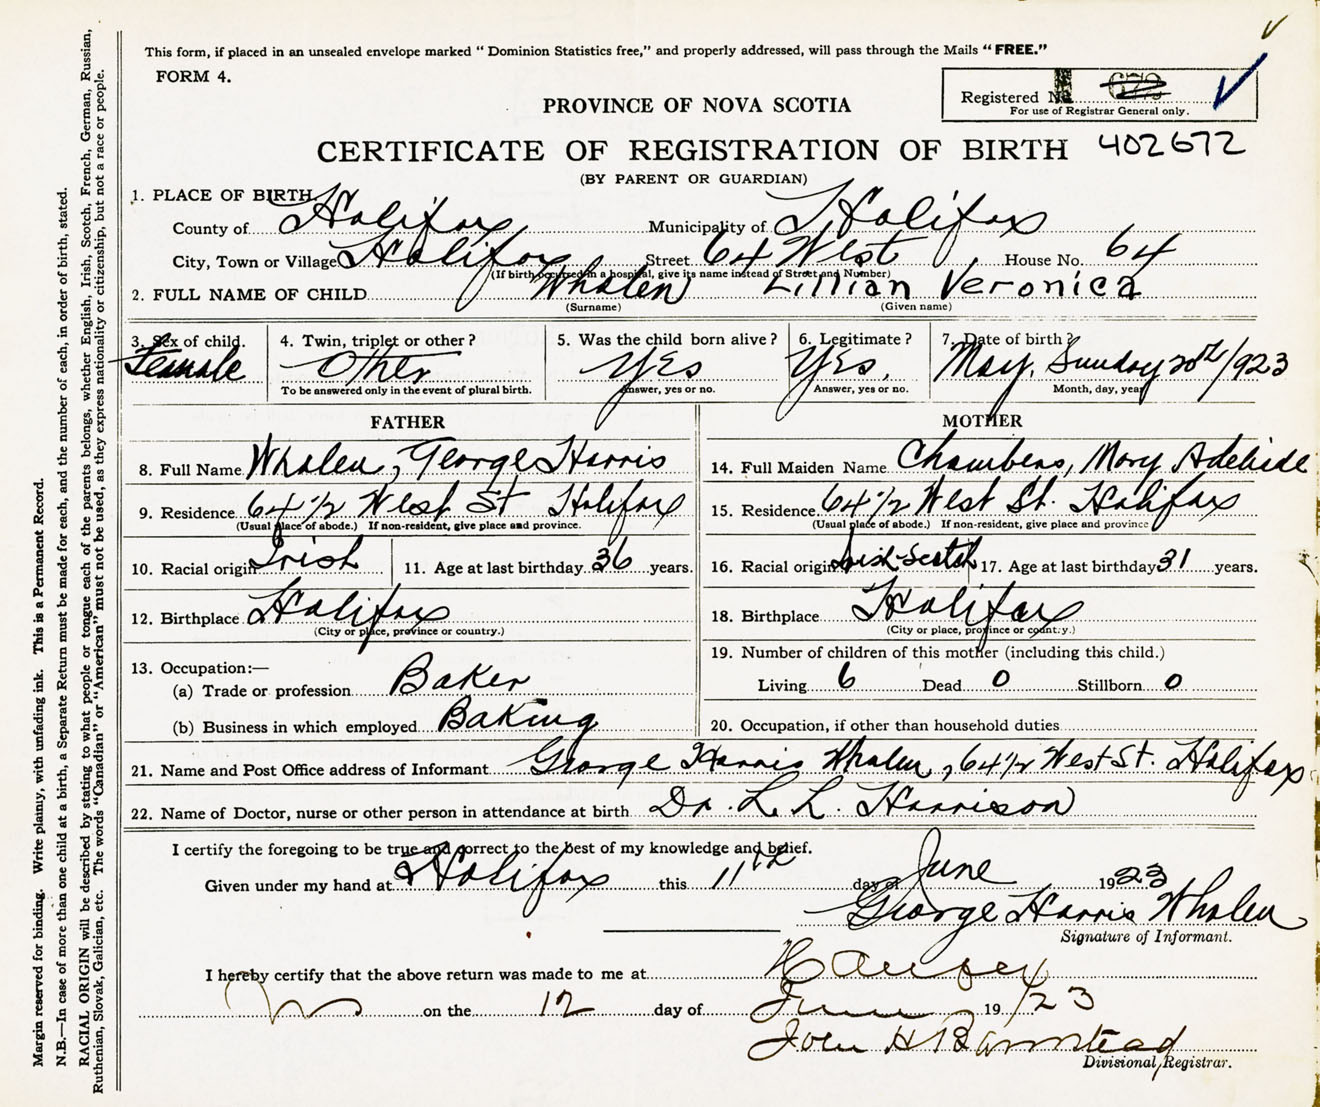 This form, if placed in an unsealed envelope marked “Dominion Statistics free,” and properly addressed, will pass through the Mails “FREE.”
FORM 4.
Registered No. 672
For use of Registrar General only.
PROVINCE OF NOVA SCOTIA
CERTIFICATE OF REGISTRATION OF BIRTH 402672
(BY PARENT OR GUARDIAN)
1. PLACE OF BIRTH
County of Halifax Municipality of Halifax
City, Town or Village Halifax Street 64 West House No. 64
(If birth occurred in a hospital, give its name instead of Street and Number)
2. FULL NAME OF CHILD Whalen Lillian Veronica
(Surname) (Given name)
3. Sex of child. 4. Twin, triplet or other? 5. Was the child born alive? 6. Legitimate? 7. Date of birth?
Female Other Yes Yes. May, Sunday 20th/1923
To be answered only in the event of plural birth. Answer, yes or no. Answer, yes or no. Month, day, year
FATHER
8. Full Name Whalen, George Harris
9. Residence 64½ West St Halifax
(Usual place of abode.) If non-resident, give place and province.
10. Racial origin Irish 11. Age at last birthday 36 years.
12. Birthplace Halifax
(City or place, province or country.)
13. Occupation:—
(a) Trade or profession Baker
(b) Business in which employed Baking
MOTHER
14. Full Maiden Name Chambers, Mary Adelaide
15. Residence 64½ West St. Halifax
(Usual place of abode.) If non-resident, give place and province
16. Racial origin Irish-Scotch 17. Age at last birthday 31 years.
18. Birthplace Halifax
(City or place, province or country.)
19. Number of children of this mother (including this child.)
Living 6 Dead 0 Stillborn 0
20. Occupation, if other than household duties
21. Name and Post Office address of Informant George Harris Whalen, 64½ West St. Halifax
22. Name of Doctor, nurse or other person in attendance at birth Dr. L L. Harrison
I certify the foregoing to be true and correct to the best of my knowledge and belief.
Given under my hand at Halifax this 11th day of June 1923
George Harris Whalen
Signature of Informant.
I hereby certify that the above return was made to me at
on the 12 day of June 19/23
John H Barnstead
Divisional Registrar.
Margin reserved for binding. Write plainly, with unfading ink. This is a Permanent Record.
N.B.—In case of more than one child at a birth, a Separate Return must be made for each, and the number of each, in order of birth, stated.
RACIAL ORIGIN will be described by stating to what people or tongue each of the parents belongs, whether English, Irish, Scotch, French, German, Russian,
Ruthenian, Slovak, Galician, etc. The words “Canadian” or “American” must not be used, as they express nationality or citizenship, but not a race or people.